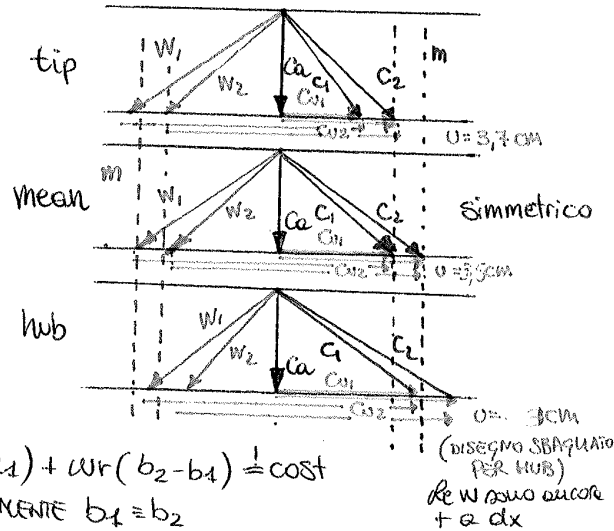 tip
W1
W2
Ca
C1
C2
m
Cu1
Cu2
U = 3,7 CM
m
mean
W1
W2
Ca
C1
C2
simmetrico
Cu1
Cu2
U = 3,5 CM
hub
W1
W2
Ca
C1
C2
Cu1
Cu2
U = 3CM
(DISEGNO SBAGLIATO
PER HUB)
le W sono ancora
+ a dx
1) + ωr(b2-b1) != cost
MENTE b1 ≡ b2